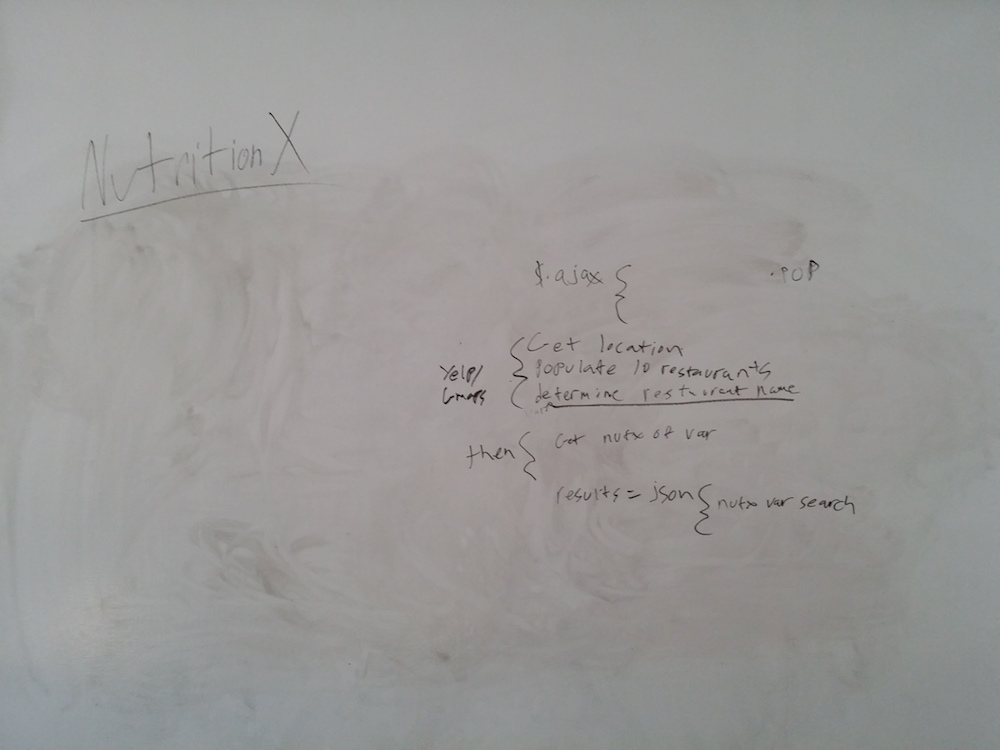 NutritionX
$.ajax { .POP
Yelp/ Gmaps { Get location
Populate 10 restaurants
determine resturent name
then { Get nutx of var
results = json { nutx var search